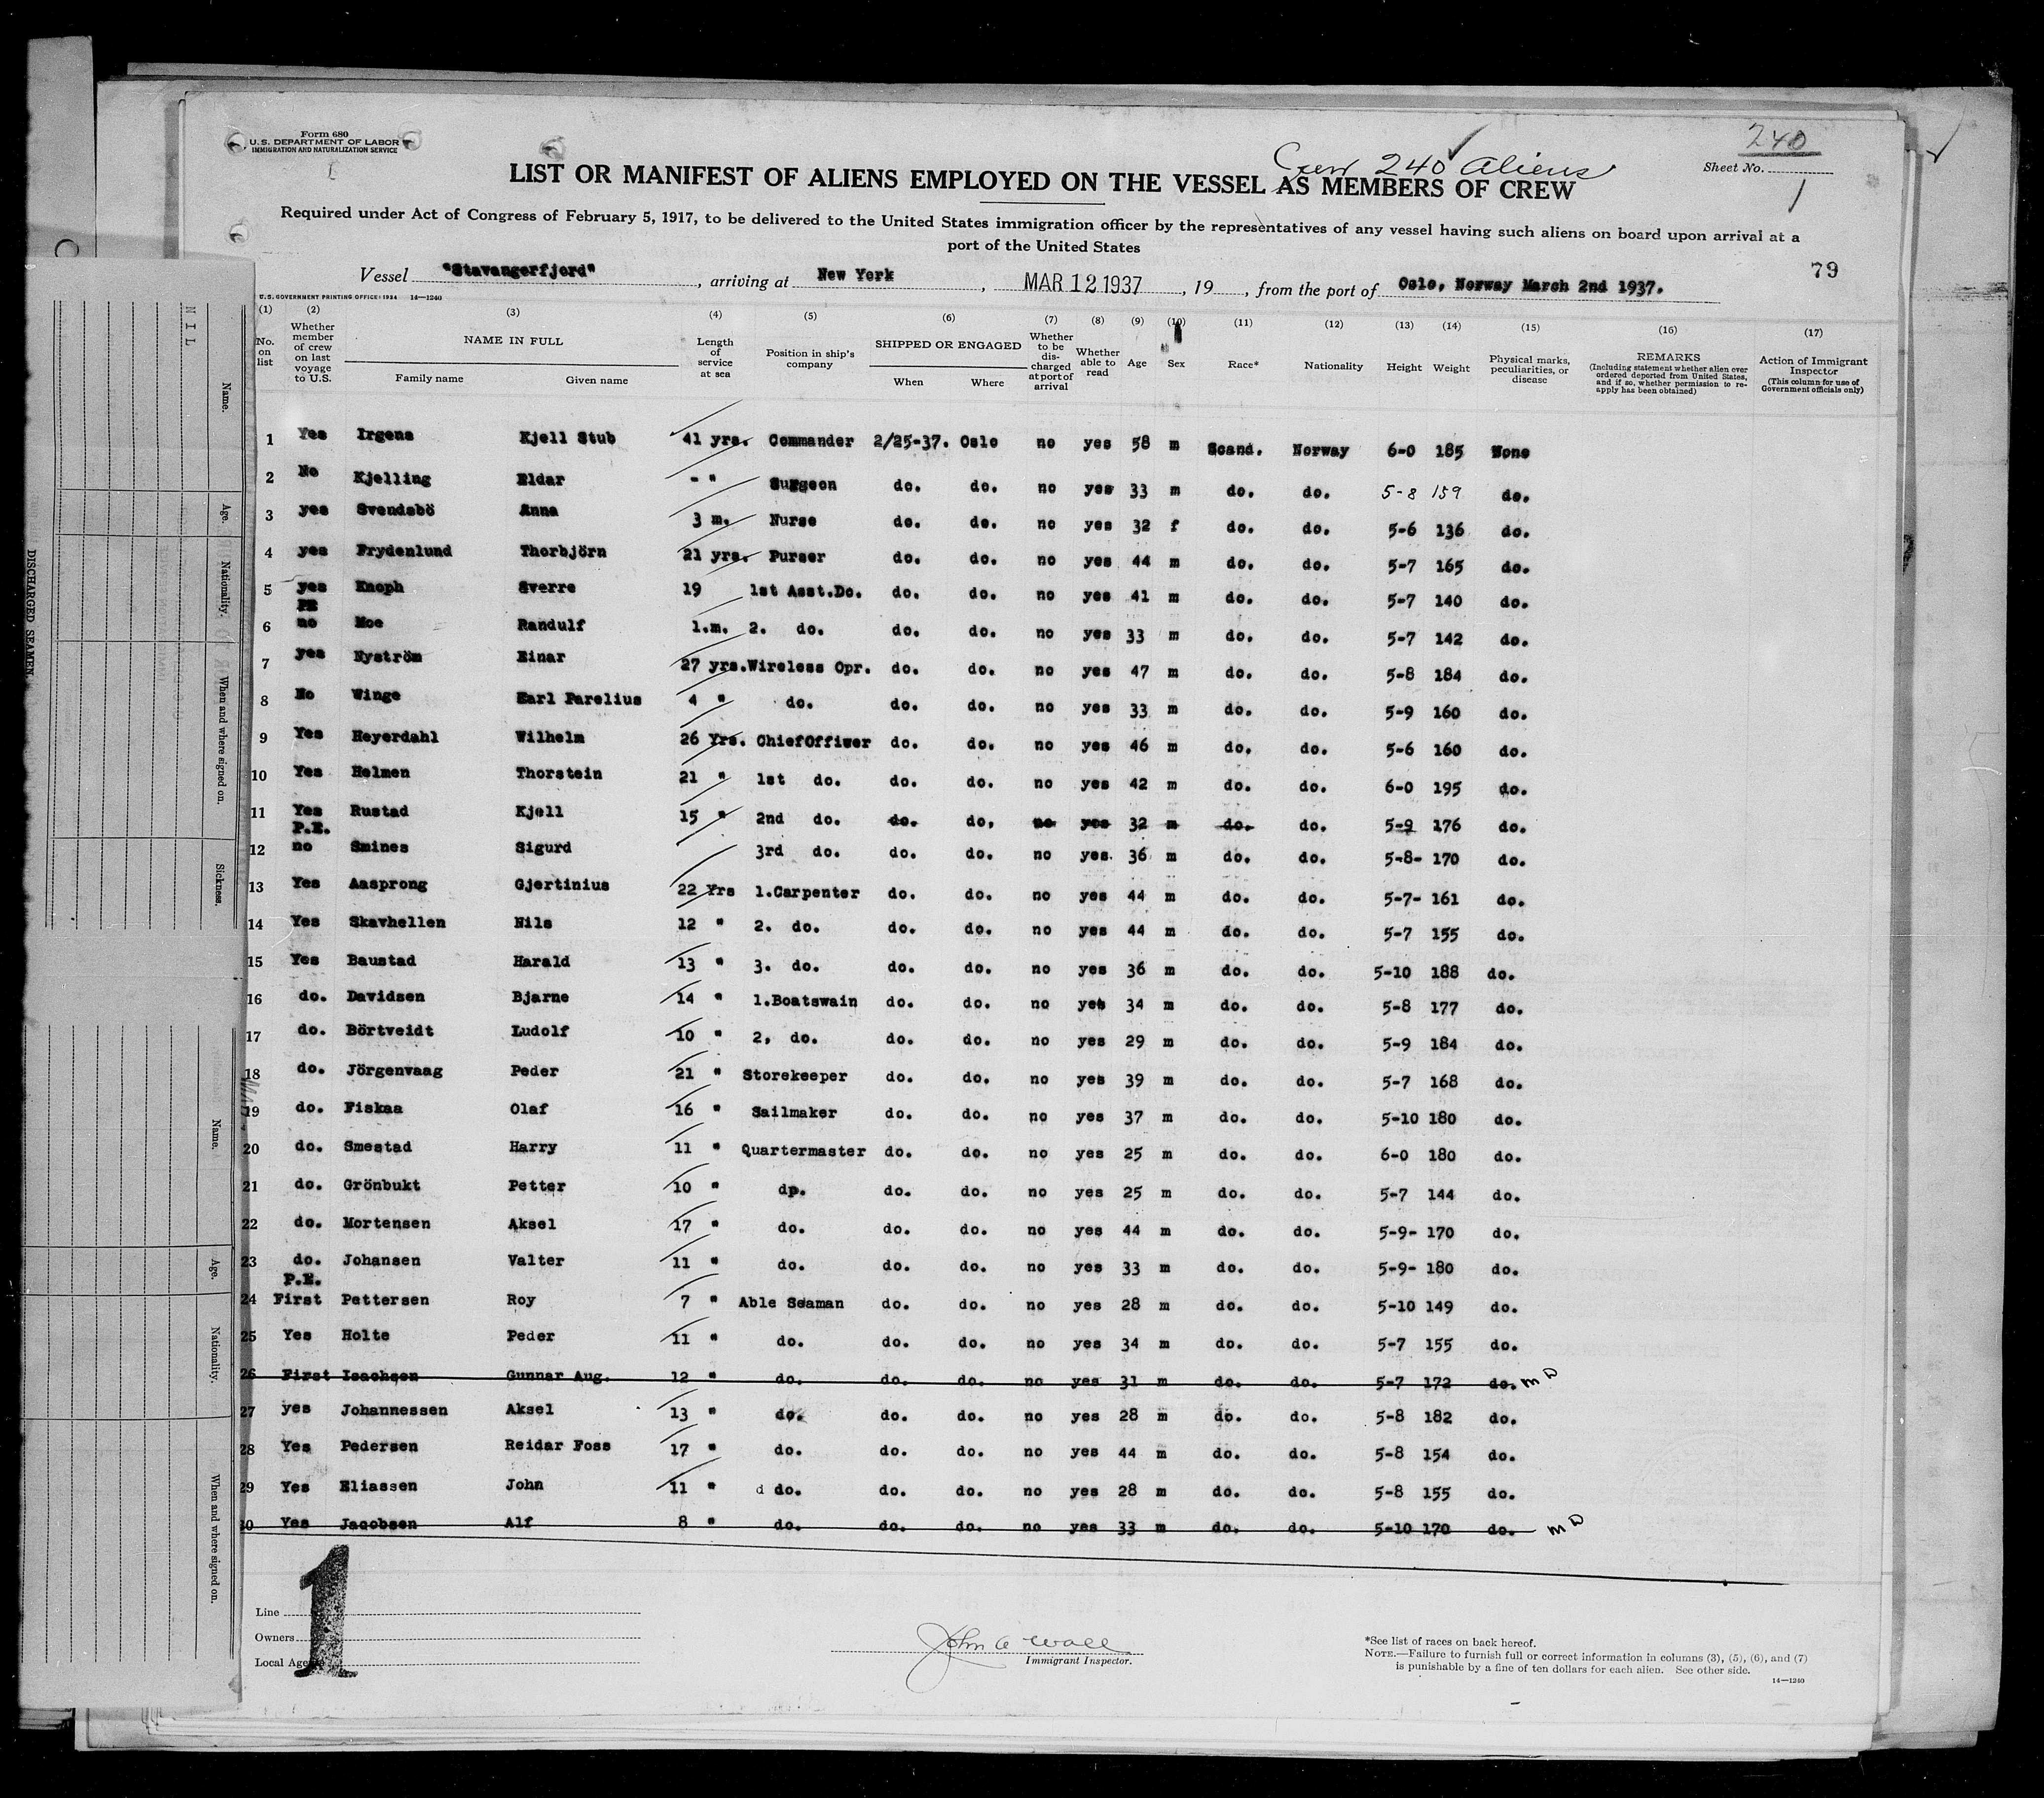 Form 680
U.S. DEPARTMENT OF LABOR
IMMIGRATION AND NATURALIZATION SERVICE
240
Sheet No.
1
Crew 240 Aliens
LIST OR MANIFEST OF ALIENS EMPLOYED ON THE VESSEL AS MEMBERS OF CREW
Required under Act of Congress of February 5, 1917, to be delivered to the United States immigration officer by the representatives of any vessel having such aliens on board upon arrival at a
port of the United States
79
Vessel "Stavangerfjord", arriving at New York, MAR 12 1937, 19, from the port of Oslo, Norway March 2nd 1937.
U.S. GOVERNMENT PRINTING OFFICE: 1934 14—1240
(1) (2) (3) (4) (5) (6) (7) (8) (9) (10) (11) (12) (13) (14) (15) (16) (17)
No. on list
Whether member of crew on last voyage to U.S.
NAME IN FULL
Family name Given name
Length of service at sea
Position in ship's company
SHIPPED OR ENGAGED
When Where
Whether to be discharged at port of arrival
Whether able to read
Age
Sex
Race*
Nationality
Height
Weight
Physical marks, peculiarities, or disease
REMARKS
(Including statement whether alien ever ordered deported from United States, and if so, whether permission to reapply has been obtained)
Action of Immigrant Inspector
(This column for use of Government officials only)
1 Yes Irgens Kjell Stub 41 yrs. Commander 2/25-37. Oslo no yes 58 m Scand. Norway 6-0 185 None
2 No Kjelling Eldar - " Surgeon do. do. no yes 33 m do. do. 5-8 159 do.
3 yes Svendsbö Anna 3 m. Nurse do. do. no yes 32 f do. do. 5-6 136 do.
4 yes Frydenlund Thorbjörn 21 yrs. Purser do. do. no yes 44 m do. do. 5-7 165 do.
5 yes Knoph Sverre 19 1st Asst.Do. do. do. no yes 41 m do. do. 5-7 140 do.
PE
6 no Moe Randulf 1.m. 2. do. do. do. no yes 33 m do. do. 5-7 142 do.
7 yes Nyström Einar 27 yrs. Wireless Opr. do. do. no yes 47 m do. do. 5-8 184 do.
8 No Winge Karl Parelius 4 " do. do. do. no yes 33 m do. do. 5-9 160 do.
9 Yes Heyerdahl Wilhelm 26 Yrs. ChiefOffiwer do. do. no yes 46 m do. do. 5-6 160 do.
10 Yes Helmen Thorstein 21 " 1st do. do. do. no yes 42 m do. do. 6-0 195 do.
11 Yes Rustad Kjell 15 " 2nd do. do. do, no yes 32 m do. do. 5-9 176 do.
P.E.
12 no Smines Sigurd 3rd do. do. do. no yes. 36 m do. do. 5-8- 170 do.
13 Yes Aasprong Gjertinius 22 Yrs 1.Carpenter do. do. no yes 44 m do. do. 5-7- 161 do.
14 Yes Skavhellen Nils 12 " 2. do. do. do. no yes 44 m do. do. 5-7 155 do.
15 Yes Baustad Harald 13 " 3. do. do. do. no yes 36 m do. do. 5-10 188 do.
16 do. Davidsen Bjarne 14 " 1.Boatswain do. do. no yes 34 m do. do. 5-8 177 do.
17 do. Börtveidt Ludolf 10 " 2, do. do. do. no yes 29 m do. do. 5-9 184 do.
18 do. Jörgenvaag Peder 21 " Storekeeper do. do. no yes 39 m do. do. 5-7 168 do.
19 do. Fiskaa Olaf 16 " Sailmaker do. do. no yes 37 m do. do. 5-10 180 do.
20 do. Smestad Harry 11 " Quartermaster do. do. no yes 25 m do. do. 6-0 180 do.
21 do. Grönbukt Petter 10 " dp. do. do. no yes 25 m do. do. 5-7 144 do.
22 do. Mortensen Aksel 17 " do. do. do. no yes 44 m do. do. 5-9- 170 do.
23 do. Johansen Valter 11 " do. do. do. no yes 33 m do. do. 5-9- 180 do.
P.E.
24 First Pettersen Roy 7 " Able Seaman do. do. no yes 28 m do. do. 5-10 149 do.
25 Yes Holte Peder 11 " do. do. do. no yes 34 m do. do. 5-7 155 do.
26 First Isachsen Gunnar Aug. 12 " do. do. do. no yes 31 m do. do. 5-7 172 do. m D
27 yes Johannessen Aksel 13 " do. do. do. no yes 28 m do. do. 5-8 182 do.
28 Yes Pedersen Reidar Foss 17 " do. do. do. no yes 44 m do. do. 5-8 154 do.
29 Yes Eliassen John 11 " d do. do. do. no yes 28 m do. do. 5-8 155 do.
30 Yes Jacobsen Alf 8 " do. do. do. no yes 33 m do. do. 5-10 170 do. m D
1
Line
Owners
Local Age
John A Wall
Immigrant Inspector.
*See list of races on back hereof.
NOTE.—Failure to furnish full or correct information in columns (3), (5), (6), and (7)
is punishable by a fine of ten dollars for each alien. See other side.
14—1240
DISCHARGED SEAMEN
NIL
Name.
Age.
Nationality.
When and where signed on.
Sickness.
Name.
Age.
Nationality.
When and where signed on.